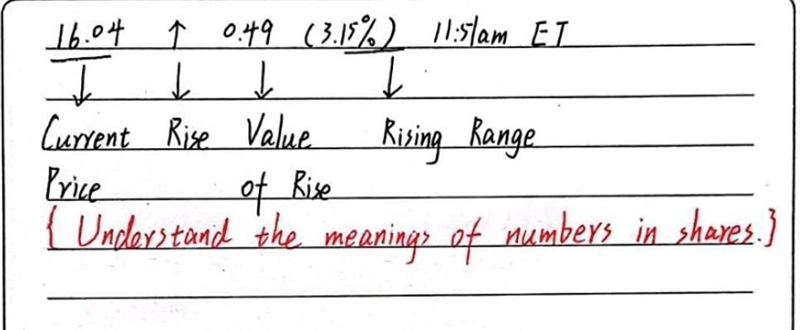 16.04 ↑ 0.49 (3.15%) 11:51am ET
↓ ↓ ↓ ↓
Current Rise Value Rising Range
Price of Rise
{Understand the meanings of numbers in shares.}